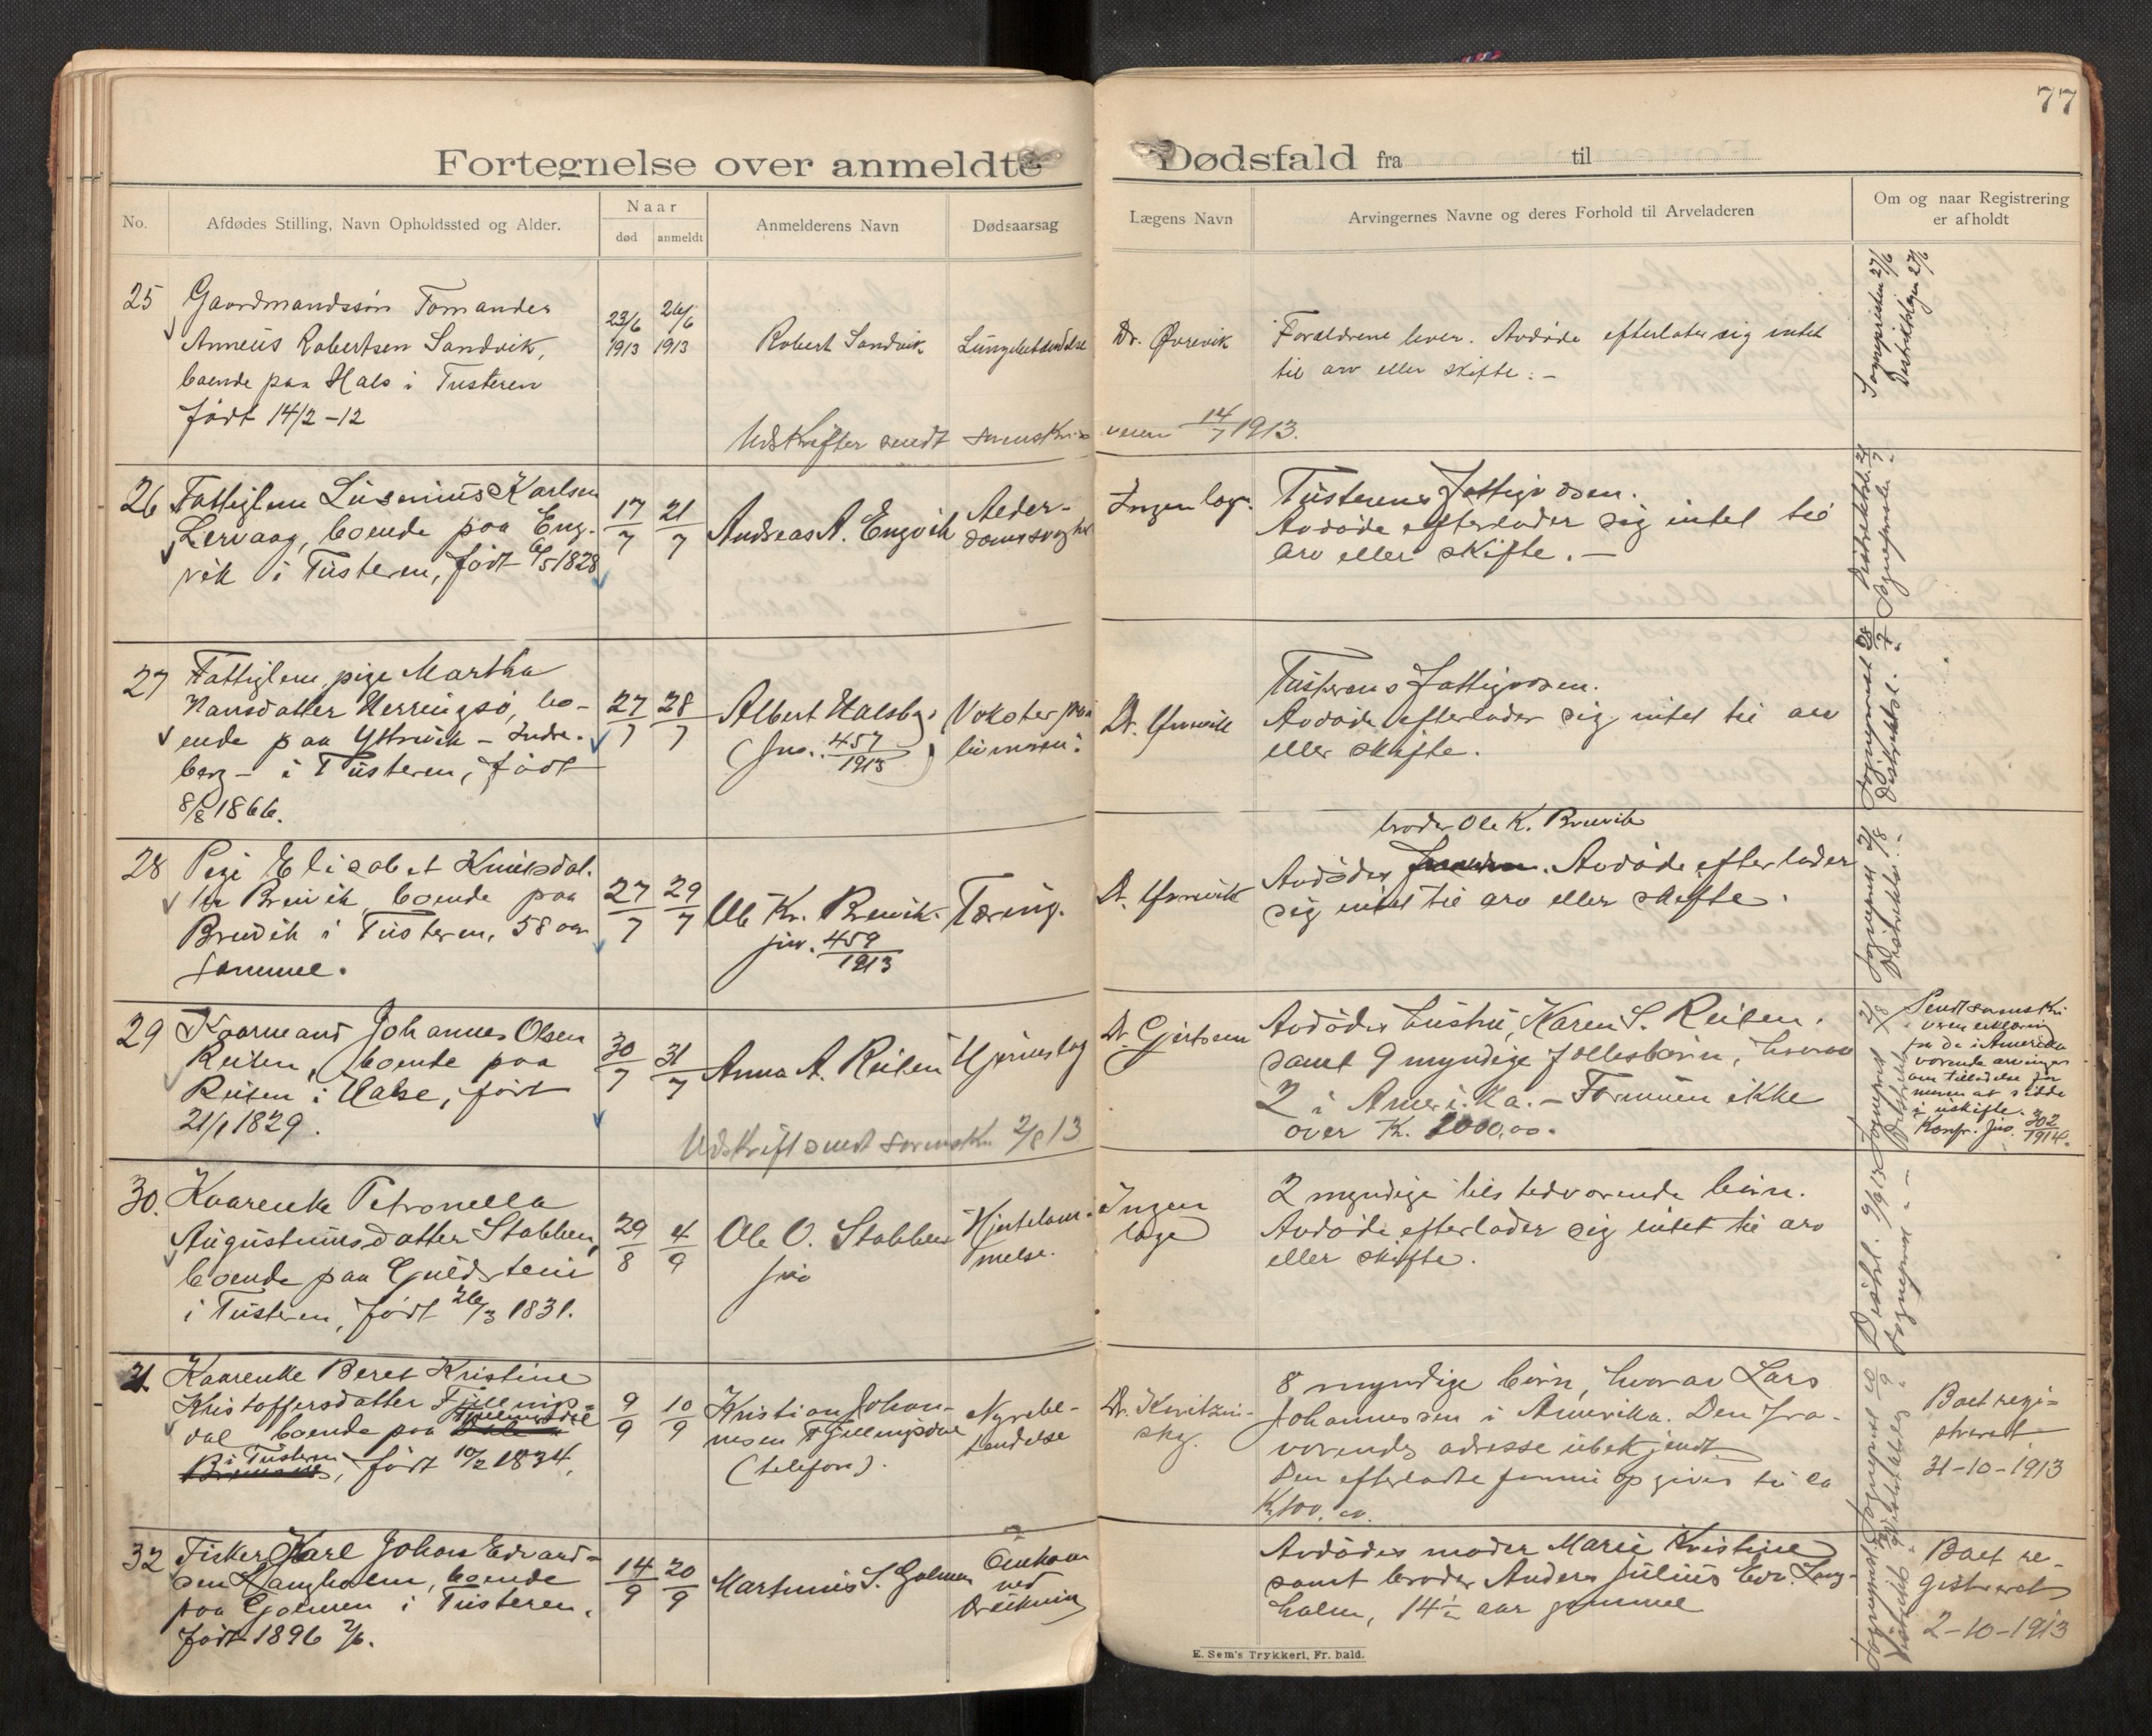 77
Fortegnelse over anmeldte Dødsfald fra til
No.
Afdødes Stilling, Navn Opholdssted og Alder.
Naar
død
anmeldt
Anmelderens Navn
Dødsaarsag
Lægens Navn
Arvingernes Navne og deres Forhold til Arveladeren
Om og naar Registrering
er afholdt
25
Gaardmandssøn Tomander
Anneus Robertsen Sandvik,
boende paa Hals i Tusteren
født 14/2-12
23/6
1913
24/6
1913
Robert Sandvik
Lungebetændelse
Dr. Øvrevik
Forældrene lever. Avdøde efterlater sig intet
til arv eller skifte.-
Sognepresten 27/6
Distriktslægen 27/6
Udskrifter sendt sorenskri-
veren 14/7 1913.
26
Fattiglem Karlsen
Lervaag, boende paa Eng-
vik i Tusteren, født 6/5 1828
17/7
21/7
Andreas A. Engvik
Alder-
domssvaghet
Ingen læge.
Tusterens Fattigvæsen.
Avdøde efterlader sig intet til
arv eller skifte.-
27
Fattiglem, pige Martha
Hansdatter Herringsø, bo-
ende paa Yttrevik - Indre-
berg - i Tusteren, født
8/8 1866.
27/7
28/7
Albert Halsbog
(Jno. 457/1913)
Vokster paa
livmoren.
Dr. Øvrevik
Tusterens Fattigvæsen.
Avdøde efterlader sig intet til arv
eller skifte.
Sogneprest 28/7
Distriktsl. "
28
Pige Elisabet Knudsdat-
ter Brevik, boende paa
Brevik i Tusteren, 58 aar
gammel.
27/7
29/7
Ole Kr. Brevik.
jno. 459/1913
Tæring.
Dr. Øvrevik
broder Ole K. Brevik
Avdødes . Avdøde efterlader
sig intet til arv eller skifte.
29
Kaarmand Johannes Olsen
Reiten, boende paa
Reiten i Halse, født
21/1 1829.
30/7
31/7
Anna A. Reiten
Hjerneslag
Dr. Gjertsen
Avdødes hustru, Karen S. Reiten.
samt 9 myndige fællesbørn, hvorav
2 i Amerika.- Formuen ikke
over Kr. 2000,00.
Sendt sorenskri-
veren erklæring
fra de i Amerika
værende arvinger
om tilladelse for
moren at sidde
i uskifte.
Konfr. Jno. 302/1914.
Udskrift sendt sorenskr. 2/8 13
30.
Kaarenke Petronella
Augustinusdatter Stabben,
boende paa Guldstein
i Tusteren, født 26/3 1831.
29/8
4/9
Ole O. Stabben
Hjertelam-
melse.
Ingen
læge
2 myndige tilstedværende børn.
Avdøde efterlader sig intet til arv
eller skifte.
31
Kaarenke Beret Kristine
Kristoffersdatter Fjellings-
dal boende paa
i Tusteren, født 10/2 1834.
9/9
10/9
Kristian Johan-
nesen Fjellingsdal
(telefon).
Nyrebe-
tændelse
8 myndige børn, hvorav Lars
Johannessen i Amerika. Den fra-
værendes adresse ubekjendt.
Den efterladte formue opgives til ca
Kr 100,00.
Boet regi-
streret
31-10-1913
32
Fisker Karl Johan Edvard-
sen Langholm, boende
paa Golmen i Tusteren.
født 1896 2/6.
14/9
20/9
Martinus S. Golmen
Omkom
ved
Drukning
Avdødes moder Marie Kristine
samt broder Anders Julius Edv. Lang-
holm, 14½ aar gammel
Boet re-
gistreret
2-10-1913
E. Sem's Trykkeri, Fr. hald.